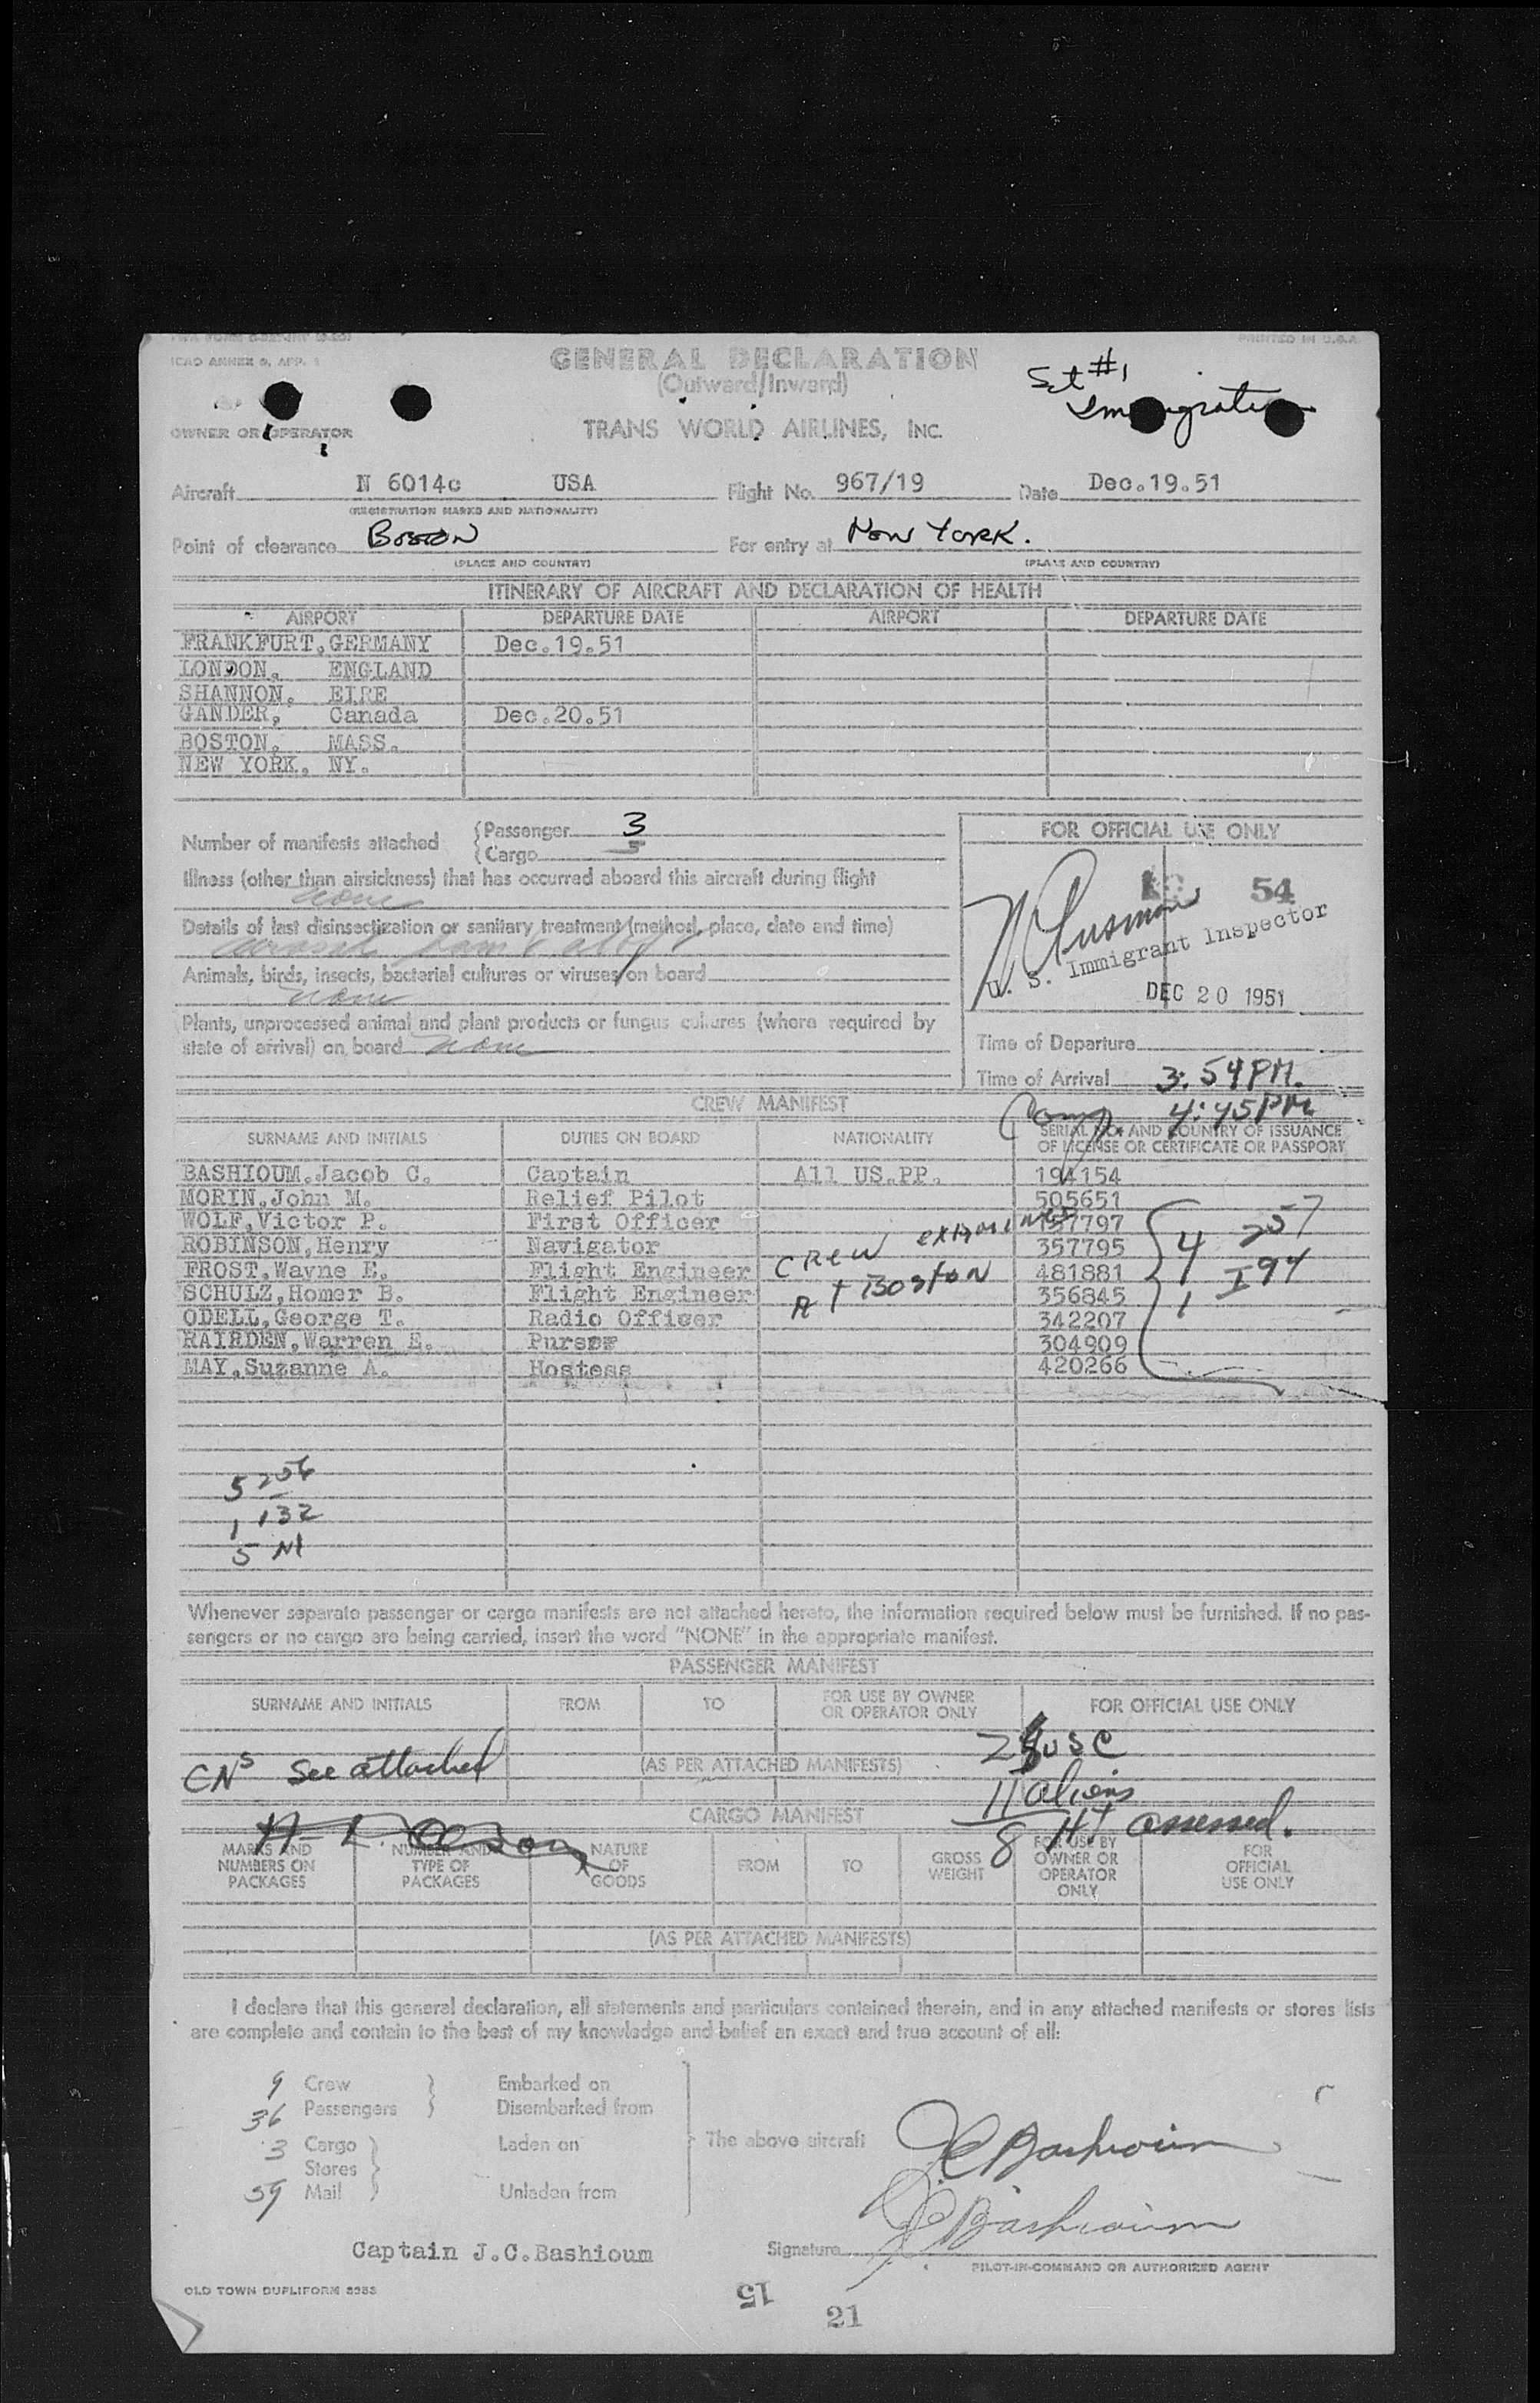 ICAO ANNEX 9, APP. 1
PRINTED IN U.S.A.
GENERAL DECLARATION
(Outward/Inward)
Set #1
Immigration
OWNER OR OPERATOR
TRANS WORLD AIRLINES, INC.
Aircraft N 6014c USA Flight No. 967/19 Date Dec.19.51
(REGISTRATION MARKS AND NATIONALITY)
Point of clearance BOSTON For entry at NEW YORK.
(PLACE AND COUNTRY) (PLACE AND COUNTRY)
ITINERARY OF AIRCRAFT AND DECLARATION OF HEALTH
AIRPORT DEPARTURE DATE AIRPORT DEPARTURE DATE
FRANKFURT,GERMANY Dec.19.51
LONDON, ENGLAND
SHANNON, EIRE
GANDER, Canada Dec.20.51
BOSTON, MASS.
NEW YORK, NY.
Number of manifests attached
Passenger 3
Cargo 5
FOR OFFICIAL USE ONLY
Illness (other than airsickness) that has occurred aboard this aircraft during flight
none
54
Details of last disinsectization or sanitary treatment (method, place, date and time)
U. S. Immigrant Inspector
Animals, birds, insects, bacterial cultures or viruses on board
none
DEC 20 1951
Plants, unprocessed animal and plant products or fungus cultures (where required by
state of arrival) on board none
Time of Departure
Time of Arrival 3:54 PM.
4:45 PM
CREW MANIFEST
SURNAME AND INITIALS DUTIES ON BOARD NATIONALITY SERIAL NO. AND COUNTRY OF ISSUANCE
OF LICENSE OR CERTIFICATE OR PASSPORT
BASHIOUM.Jacob C. Captain All US.PP. 194154
MORIN,John M. Relief Pilot 505651
WOLF,Victor P. First Officer 157797
ROBINSON,Henry Navigator 357795
FROST,Wayne E. Flight Engineer 481881
SCHULZ,Homer B. Flight Engineer 356845
ODELL,George T. Radio Officer 342207
RAIRDEN,Warren E. Purser 304909
MAY,Suzanne A. Hostess 420266
CREW EXAMINED
AT BOSTON
4 257
1 I94
5 256
1 132
5 NI
Whenever separate passenger or cargo manifests are not attached hereto, the information required below must be furnished. If no pas-
sengers or no cargo are being carried, insert the word "NONE" in the appropriate manifest.
PASSENGER MANIFEST
SURNAME AND INITIALS FROM TO FOR USE BY OWNER
OR OPERATOR ONLY FOR OFFICIAL USE ONLY
USC
CNS See attached (AS PER ATTACHED MANIFESTS)
11 aliens
CARGO MANIFEST
8 HT assessed.
MARKS AND
NUMBERS ON
PACKAGES
NUMBER AND
TYPE OF
PACKAGES
NATURE
OF
GOODS
FROM TO GROSS
WEIGHT
FOR USE BY
OWNER OR
OPERATOR
ONLY
FOR
OFFICIAL
USE ONLY
(AS PER ATTACHED MANIFESTS)
I declare that this general declaration, all statements and particulars contained therein, and in any attached manifests or stores lists
are complete and contain to the best of my knowledge and belief an exact and true account of all:
9 Crew Embarked on
36 Passengers Disembarked from
3 Cargo Laden on The above aircraft JC Bashioum
Stores
59 Mail Unladen from
JC Bashioum
Captain J.C.Bashioum Signature
PILOT-IN-COMMAND OR AUTHORIZED AGENT
OLD TOWN DUPLIFORM 8383
15
21